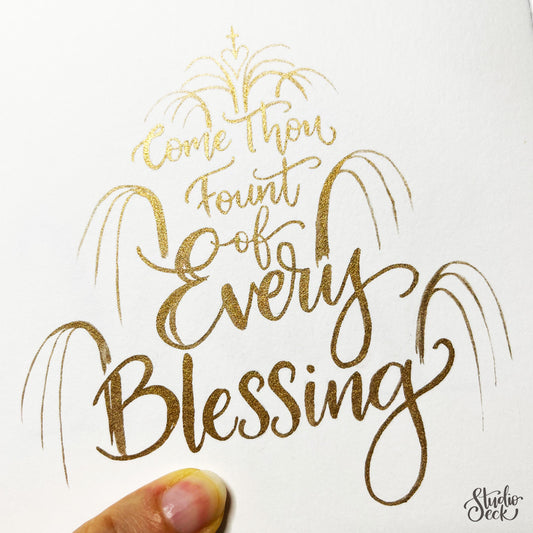 Come Thou
Fount
of
Every
Blessing
Studio
Eeck